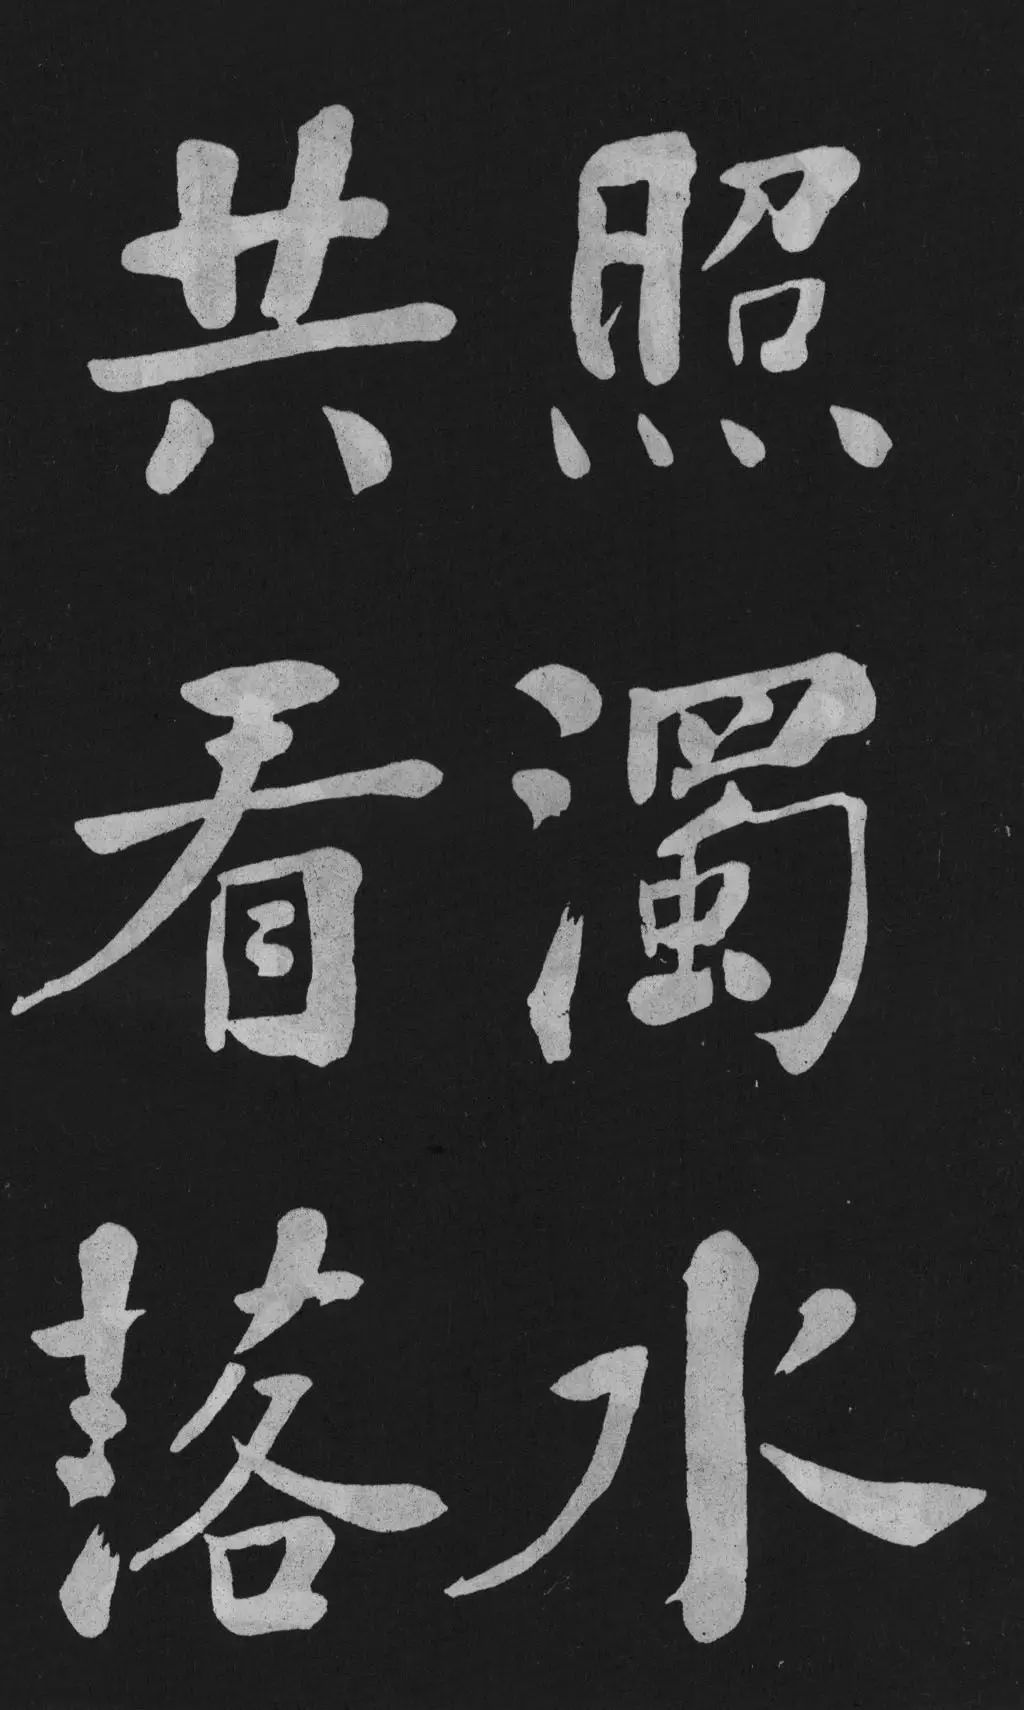 照濁水
共看落